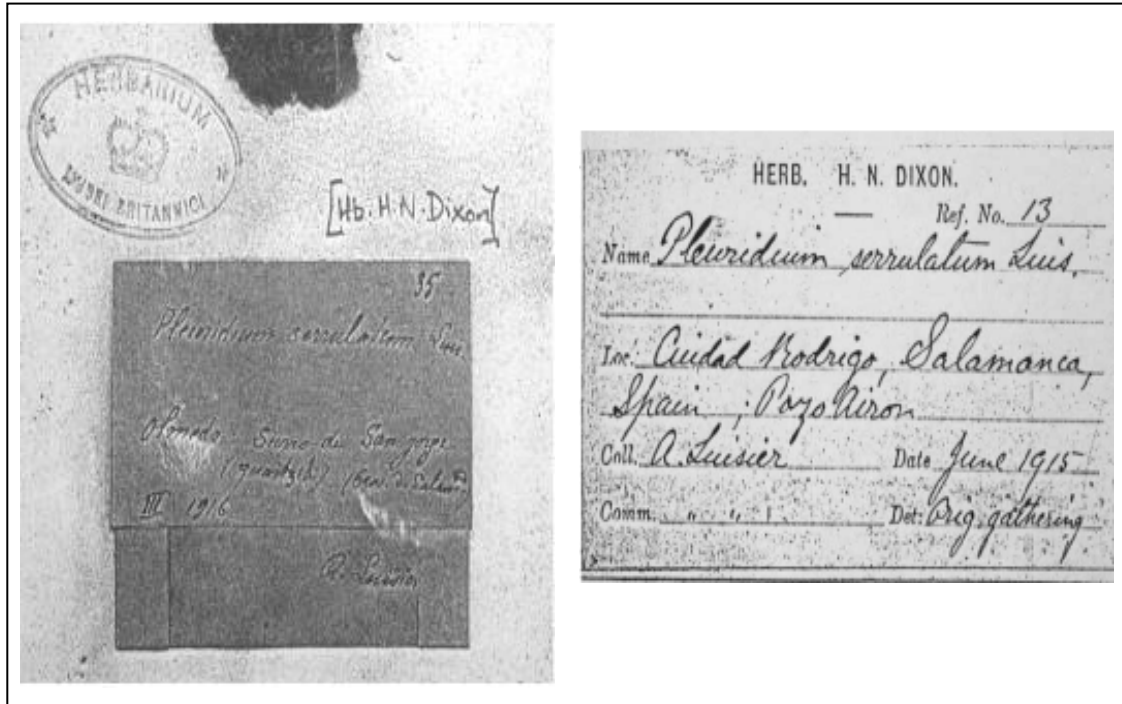 HERBARIUM
MUSEI BRITANNICI
[Hb. H. N. Dixon]
35
Pleuridium serrulatum Luis.
Olmedo
(quartzit)
III 1916
A. Luisier
HERB. H. N. DIXON.
Ref. No. 13
Name Pleuridium serrulatum Luis.
Loc. Ciudad Rodrigo, Salamanca,
Spain; Pozo Airon
Coll. A. Luisier Date June 1915
Comm. " " Det: Orig. gathering